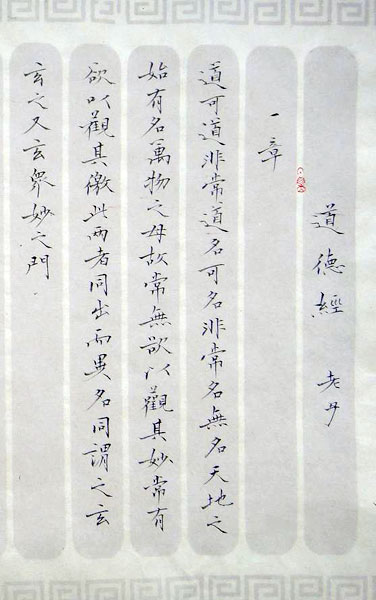 道德經 老丹
一章
道可道非常道名可名非常名無名天地之
始有名萬物之母故常無欲以觀其妙常有
欲以觀其徼此兩者同出而異名同謂之玄
玄之又玄眾妙之門